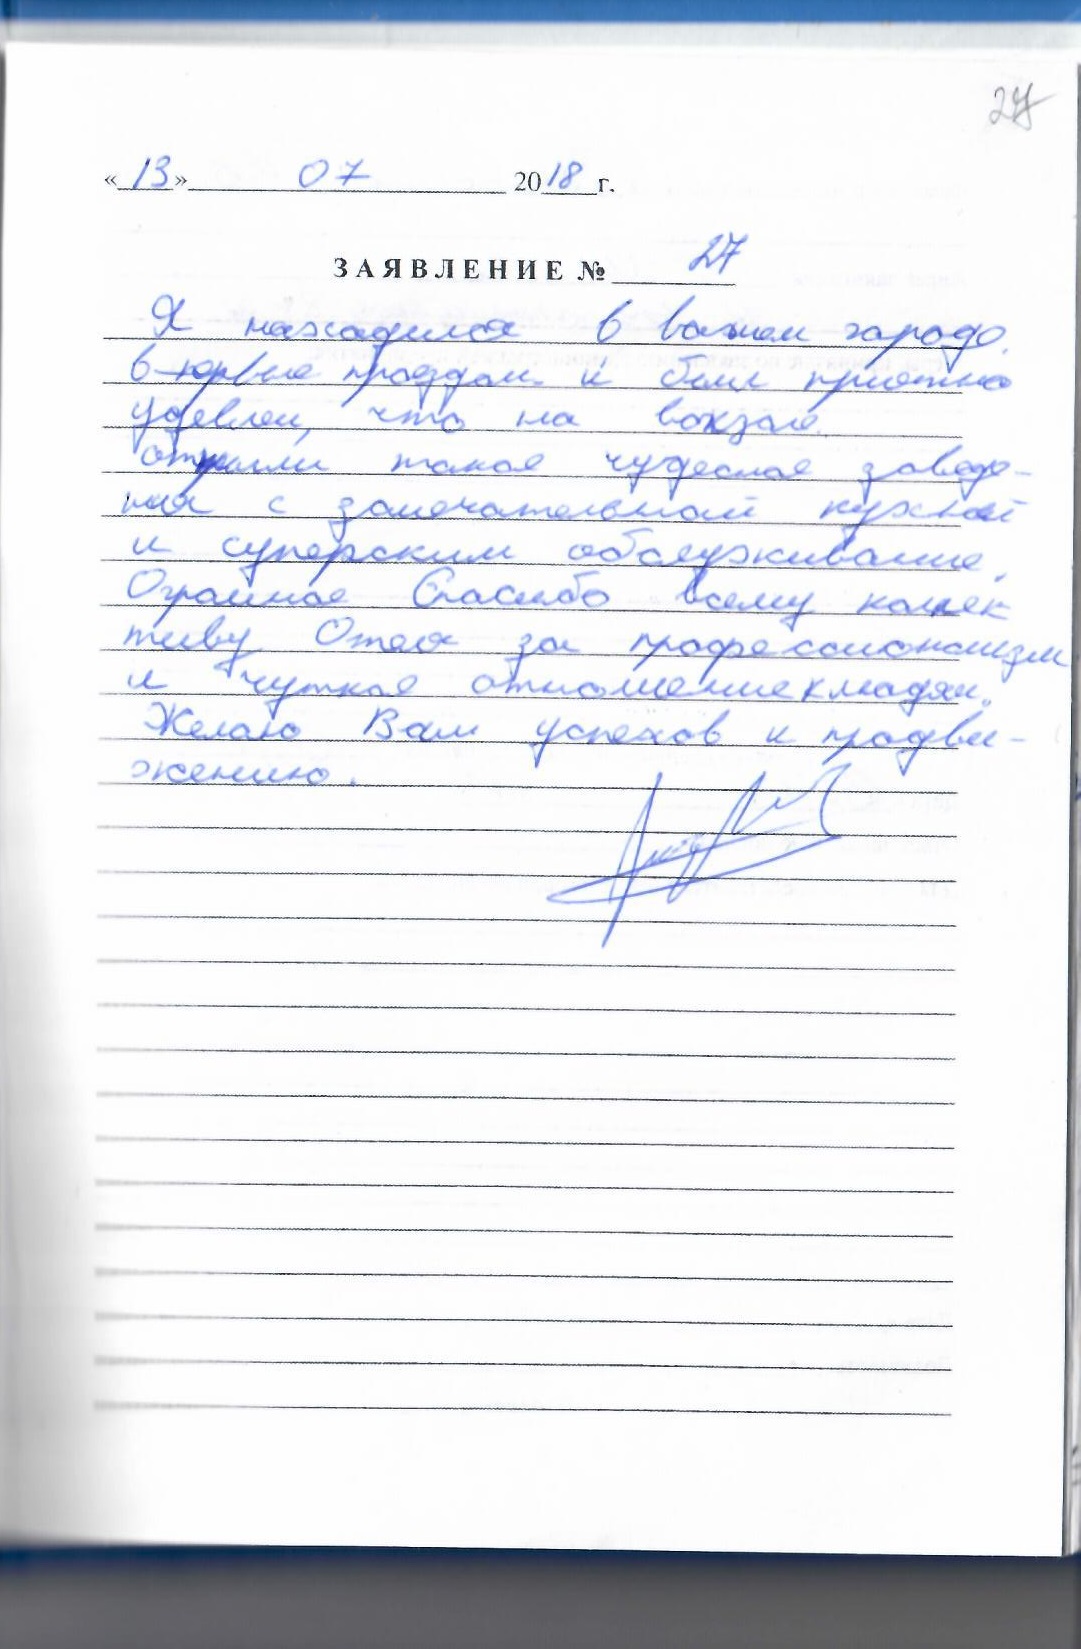 27
« 13 » 07 2018 г.
ЗАЯВЛЕНИЕ № 27
Я находился в вашем городе.
проездом и был приятно
удевлен, что на вокзале
открыли такое чудесное заведе-
ния с замечательной кухней
и суперским обслуживание.
Огромное Спасибо всему коллек
тиву Отеля за професионализм
и чуткое отношение к людям.
Желаю Вам успехов и продви-
жению.